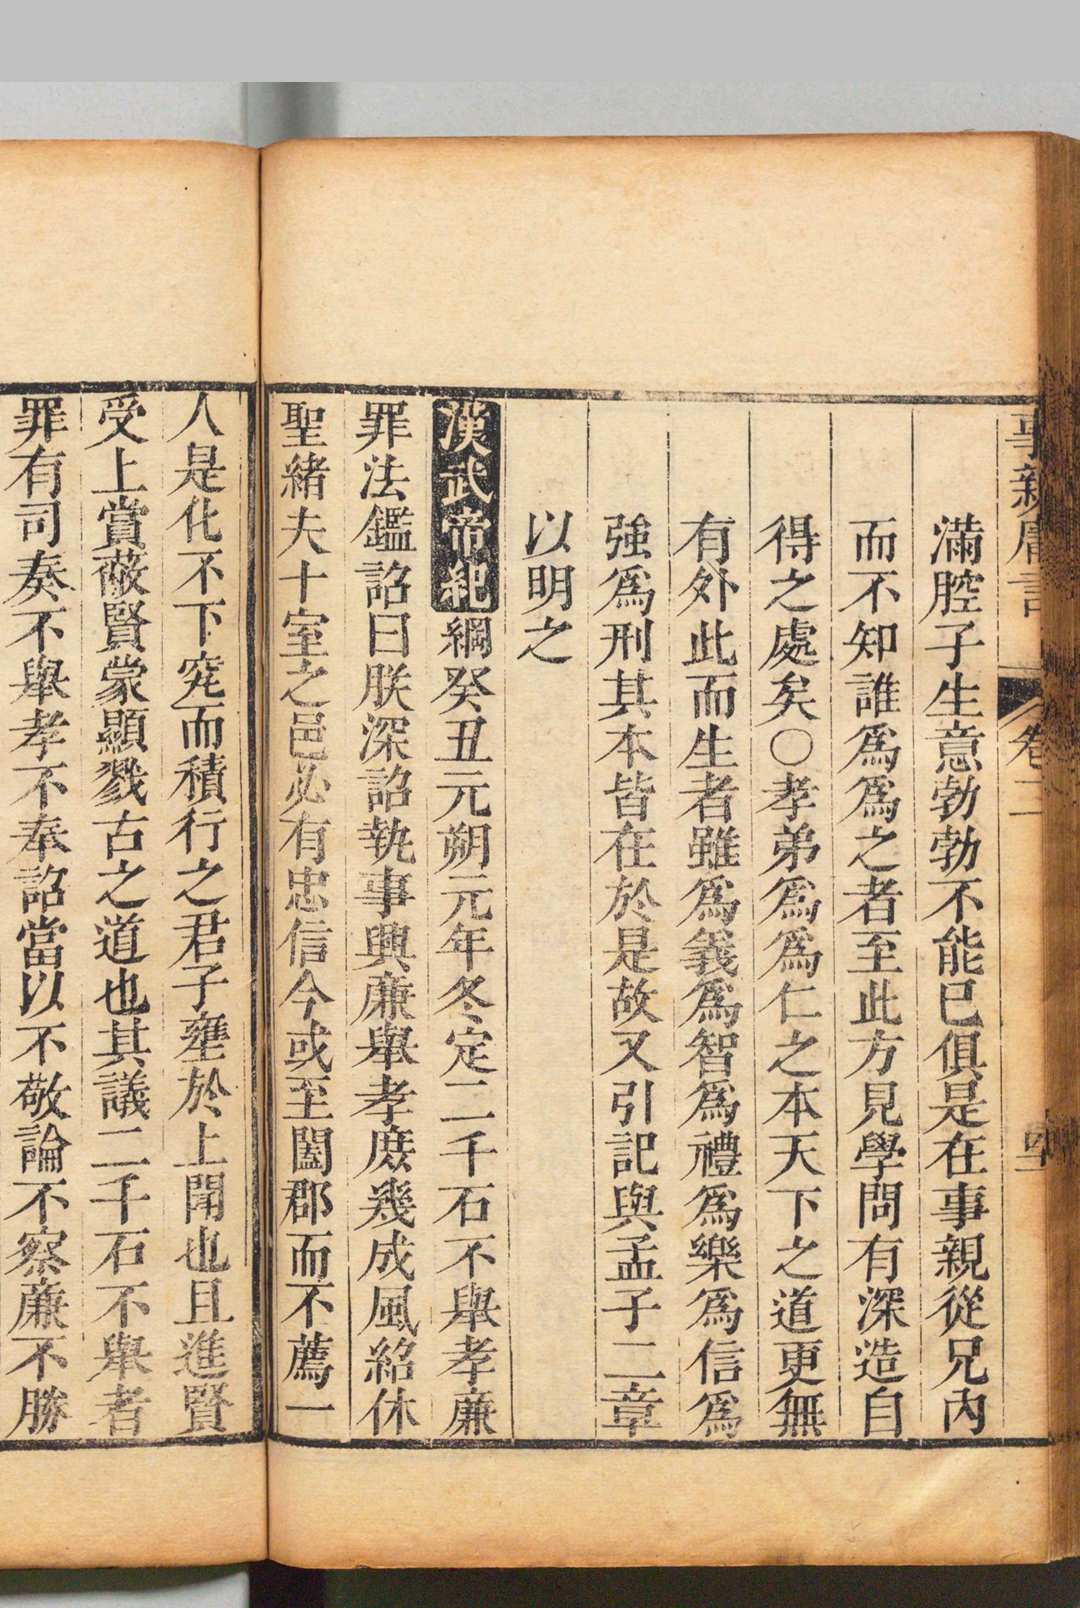 事親庸言 卷二
滿腔子生意勃勃不能已俱是在事親從兄內
而不知誰爲爲之者至此方見學問有深造自
得之處矣○孝弟爲爲仁之本天下之道更無
有外此而生者雖爲義爲智爲禮爲樂爲信爲
強爲刑其本皆在於是故又引記與孟子二章
以明之
漢武帝紀綱癸丑元朔元年冬定二千石不舉孝廉
罪法鑑詔曰朕深詔執事興廉舉孝庶幾成風紹休
聖緒夫十室之邑必有忠信今或至闔郡而不薦一
人是化不下究而積行之君子壅於上聞也且進賢
受上賞蔽賢蒙顯戮古之道也其議二千石不舉者
罪有司奏不舉孝不奉詔當以不敬論不察廉不勝